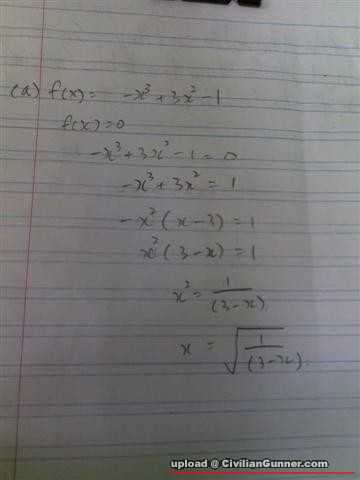 (a) f(x) = -x³ + 3x² - 1
f(x) = 0
-x³ + 3x² - 1 = 0
-x³ + 3x² = 1
-x² (x - 3) = 1
x² (3 - x) = 1
x² = 1/(3 - x)
x = √(1/(3 - x))
upload @ CivilianGunner.com